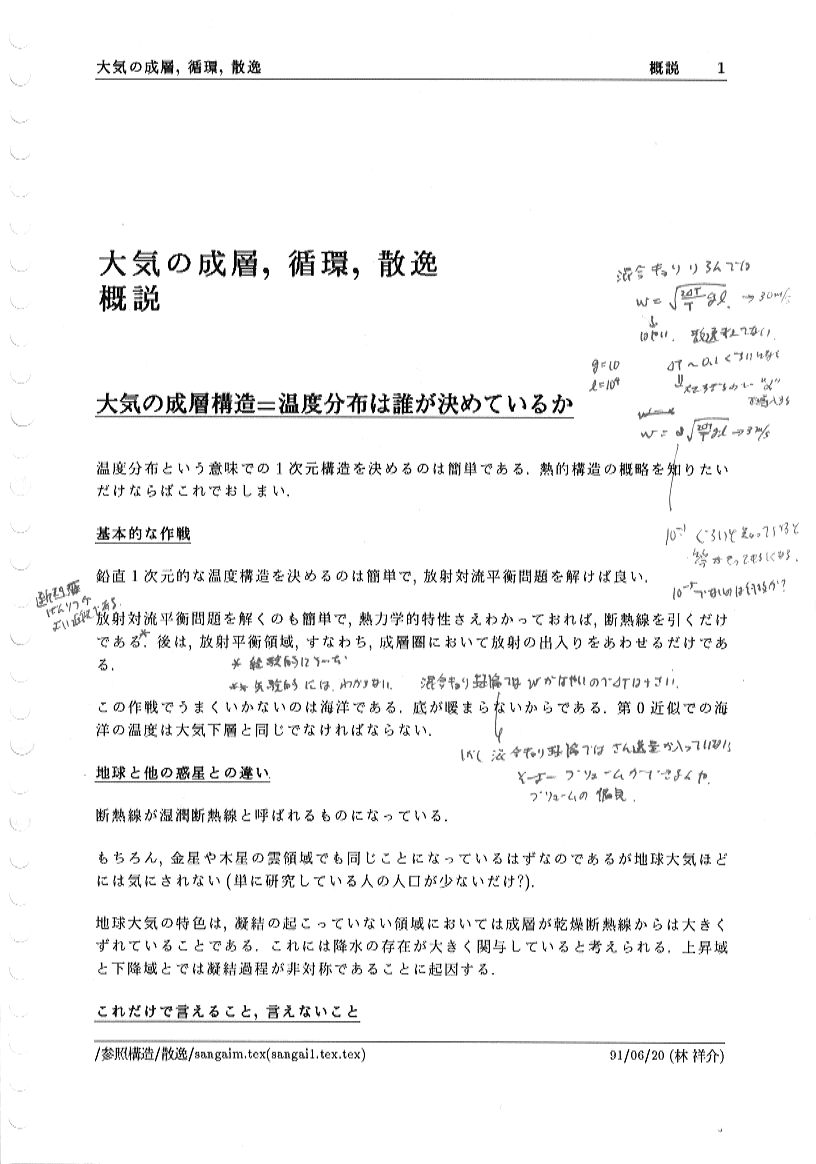 大気の成層, 循環, 散逸 概説 1
大気の成層, 循環, 散逸
概説
混合キョリ
w = √(2ΔT/T gl) → 30m/s
↓
g=10 ΔT ~ 0.1
l=10⁴
大気の成層構造=温度分布は誰が決めているか
w = α√(2ΔT/T gl) → 3m/s
温度分布という意味での1次元構造を決めるのは簡単である. 熱的構造の概略を知りたい
だけならばこれでおしまい.
基本的な作戦
10⁻¹ ぐらいと
鉛直1次元的な温度構造を決めるのは簡単で, 放射対流平衡問題を解けば良い.
10⁻⁵
放射対流平衡問題を解くのも簡単で, 熱力学的特性さえわかっておれば, 断熱線を引くだけ
である*. 後は, 放射平衡領域, すなわち, 成層圏において放射の出入りをあわせるだけであ
る.
* 経験的に
** には, わからない. 混合キョリ理論では wがはやいのでΔTは小さい.
この作戦でうまくいかないのは海洋である. 底が暖まらないからである. 第0近似での海
洋の温度は大気下層と同じでなければならない.
しかし 混合キョリ理論では
地球と他の惑星との違い
プリュームの
断熱線が湿潤断熱線と呼ばれるものになっている.
もちろん, 金星や木星の雲領域でも同じことになっているはずなのであるが地球大気ほど
には気にされない (単に研究している人の人口が少ないだけ?).
地球大気の特色は, 凝結の起こっていない領域においては成層が乾燥断熱線からは大きく
ずれていることである. これには降水の存在が大きく関与していると考えられる. 上昇域
と下降域とでは凝結過程が非対称であることに起因する.
これだけで言えること, 言えないこと
/参照構造/散逸/sangaim.tex(sangai1.tex.tex) 91/06/20 (林 祥介)